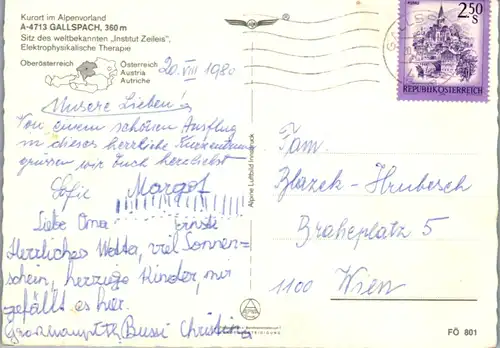 Kurort im Alpenvorland
A-4713 GALLSPACH, 360 m
Sitz des weltbekannten „Institut Zeileis",
Elektrophysikalische Therapie
Oberösterreich
Österreich
Austria
Autriche
20. VIII 1980
Unsere Lieben!
Von einem schönen Ausflug
in dieses herrliche Kurzentrum
grüssen wir Euch herzlichst
Sofie Margot
Liebe Oma Ernstl
Herrliches Wetter, viel Sonnen=
schein, herzige Kinder, mir
gefällt es hier.
Bussi Christina
Alpine Luftbild Innsbruck
2.50 S
REPUBLIK ÖSTERREICH
Fam.
Blazek-Hrubesch
Braheplatz 5
1100 Wien
FÖ 801